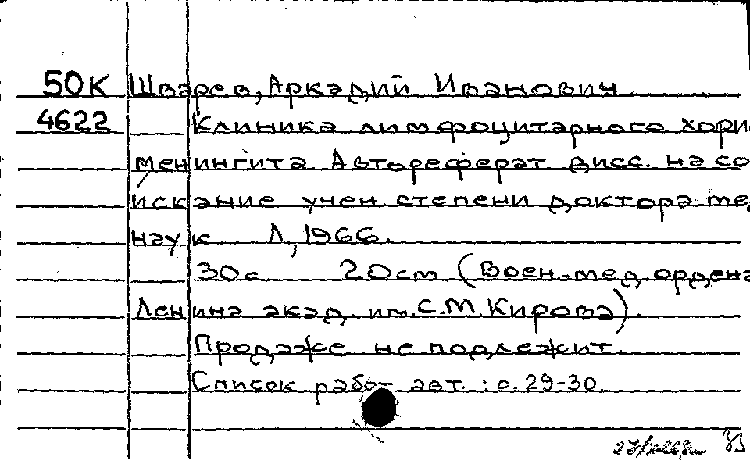 50К Шварев, Аркадий Иванович
4622 Клиника лимфоцитарного хори
менингита. Автореферат дисс. на со
искание учен степени доктора ме
наук Л, 1966.
30с 20см (Воен.-мед. ордена
Ленина акад. им. С.М. Кирова).
Продаже не подлежит.
Список работ авт. : с. 29-30.